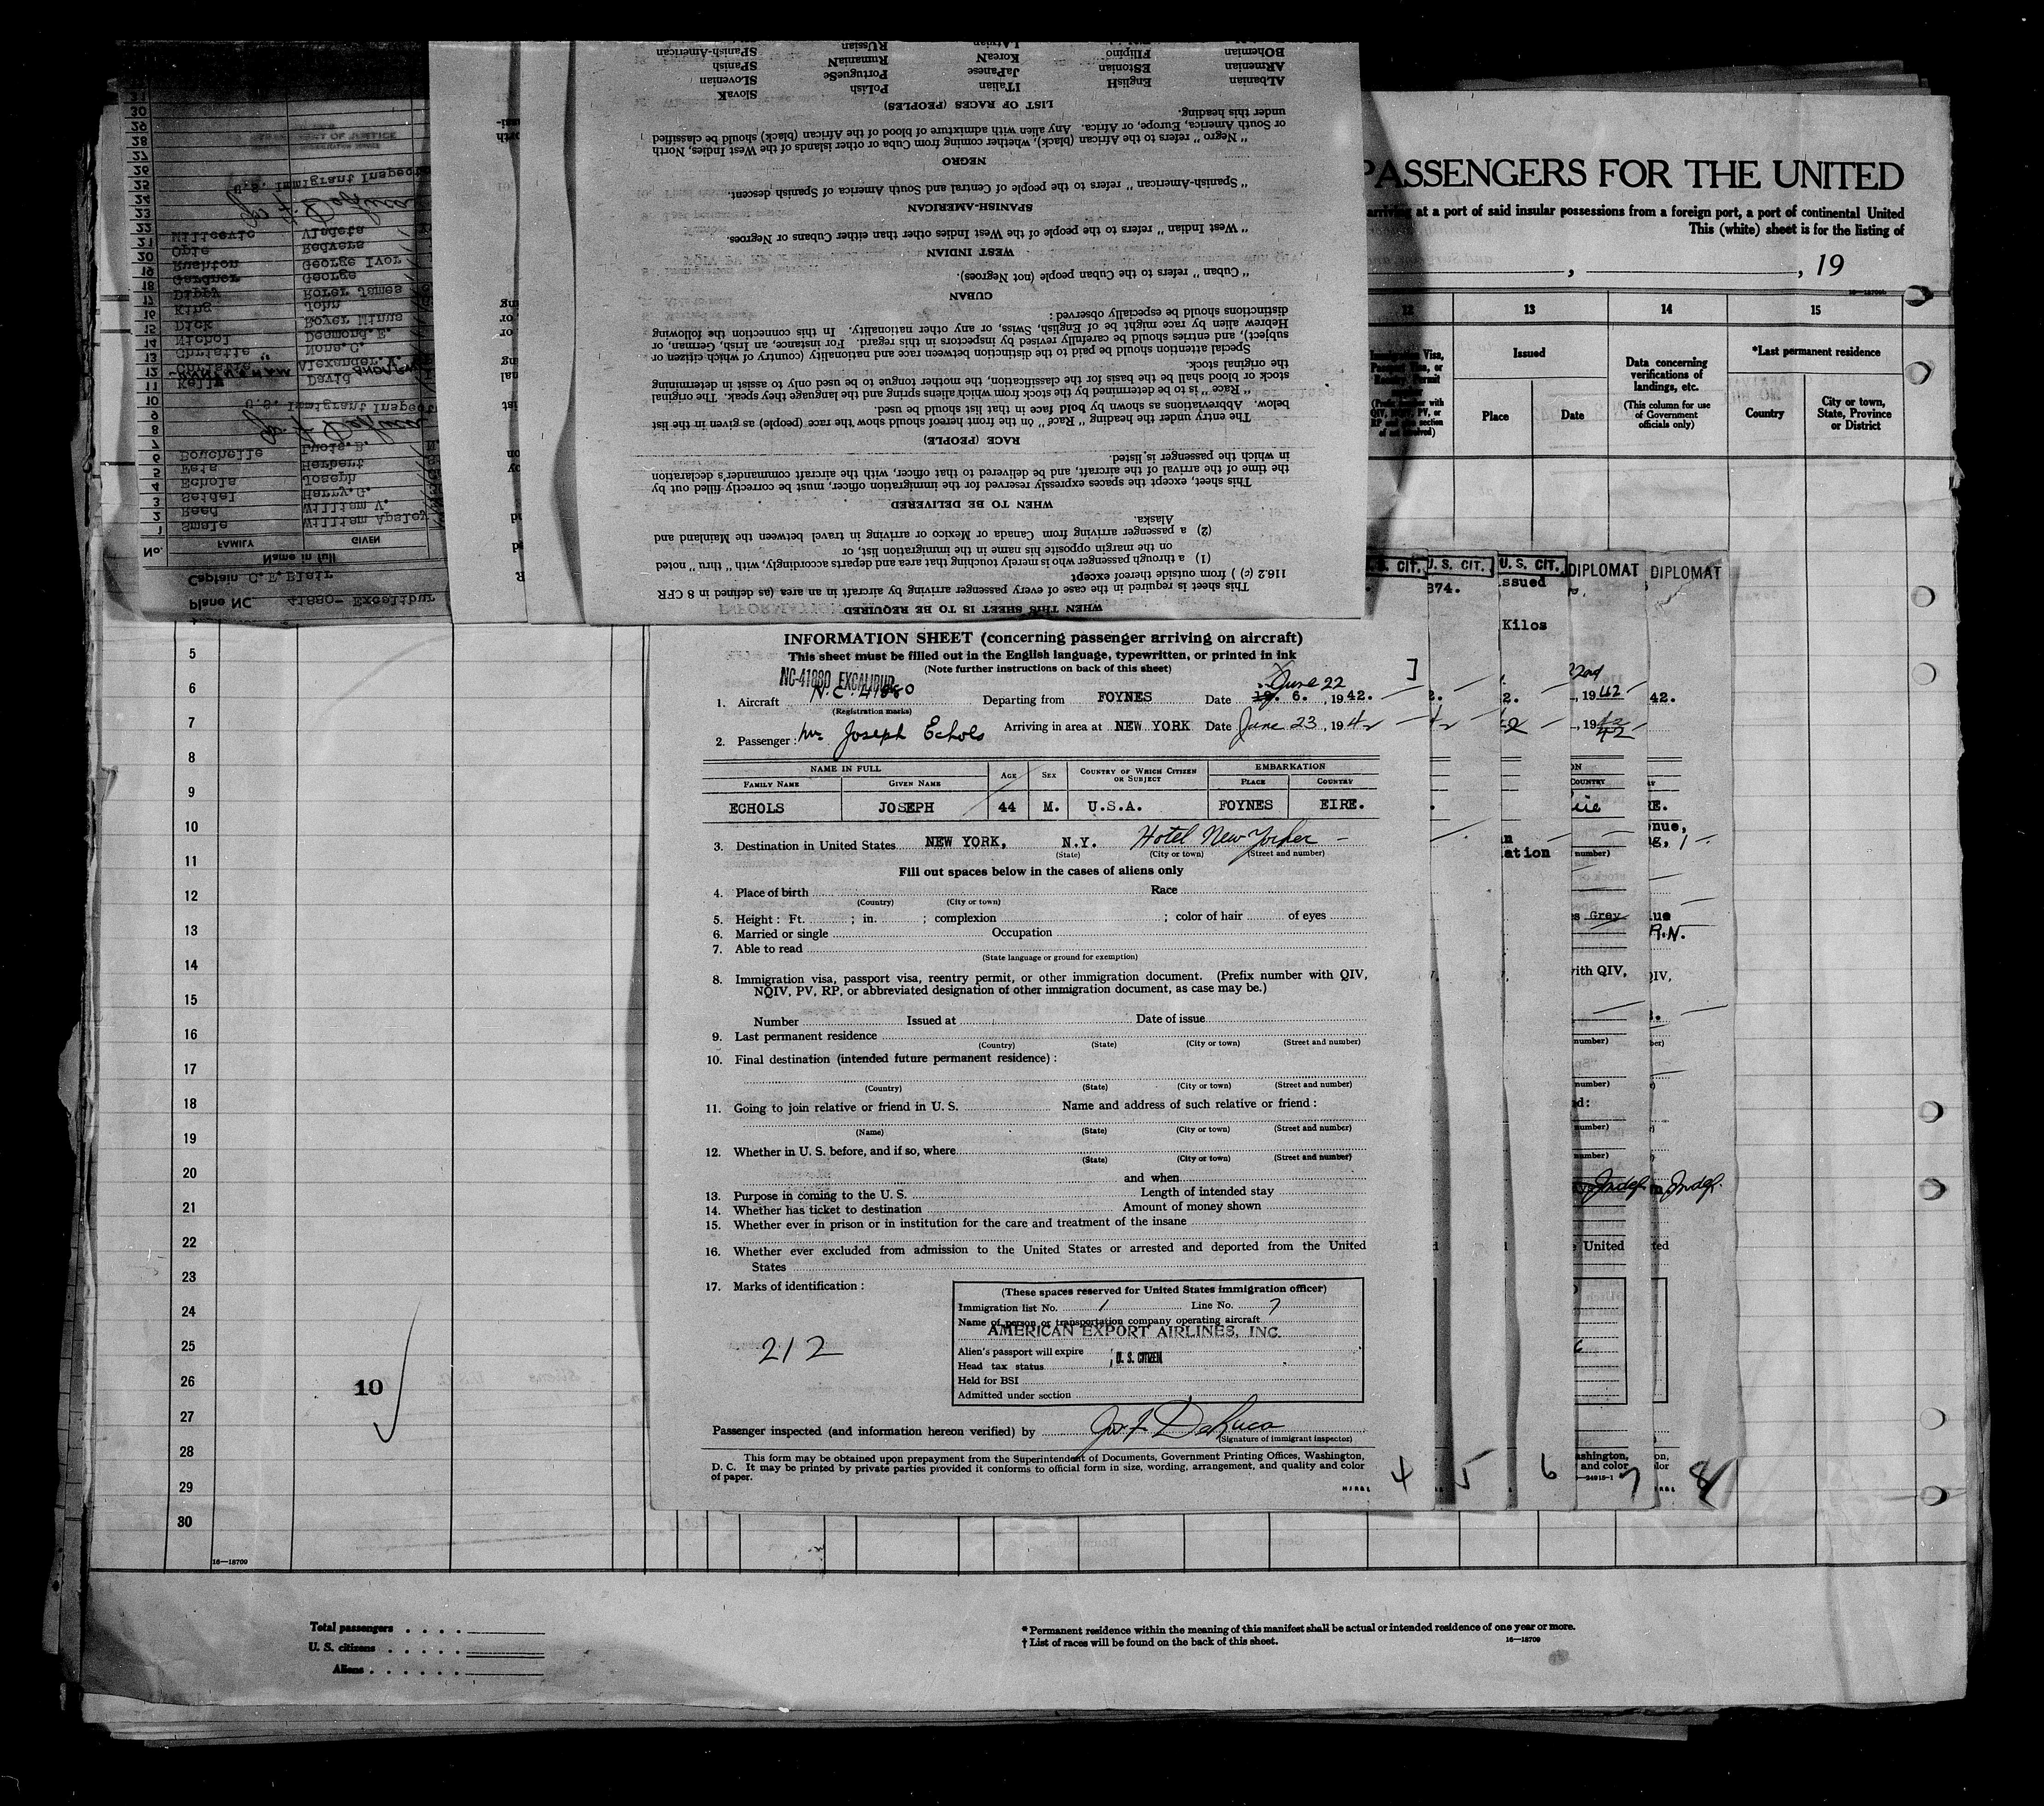 PASSENGERS FOR THE UNITED
arriving at a port of said insular possessions from a foreign port, a port of continental United
This (white) sheet is for the listing of
, 19
12 13 14 15
Issued
Place Date
Data concerning verifications of landings, etc.
(This column for use of Government officials only)
*Last permanent residence
Country City or town, State, Province or District
SlovaK ITalian EnglisH ALbanian
SLovenian PoLish JaPanese EStonian ARmenian
SPanisH PortugueSe KoreaN FIlipino BOhemian
SPanish-American RumaniaN
RUssian
LIST OF RACES (PEOPLES)
under this heading.
or South America, Europe, or Africa. Any alien with admixture of blood of the African (black) should be classified
"Negro" refers to the African (black), whether coming from Cuba or other islands of the West Indies, North
NEGRO
"Spanish-American" refers to the people of Central and South America of Spanish descent.
SPANISH-AMERICAN
"West Indian" refers to the people of the West Indies other than either Cubans or Negroes.
WEST INDIAN
"Cuban" refers to the Cuban people (not Negroes).
CUBAN
distinctions should be especially observed:
Hebrew alien by race might be of English, Swiss, or any other nationality. In this connection the following
subject), and entries should be carefully revised by inspectors in this regard. For instance, an Irish, German, or
Special attention should be paid to the distinction between race and nationality (country of which citizen or
the original stock.
stock or blood shall be the basis for the classification, the mother tongue to be used only to assist in determining
"Race" is to be determined by the stock from which aliens spring and the language they speak. The original
below. Abbreviations as shown by bold face in that list should be used.
The entry under the heading "Race" on the front hereof should show the race (people) as given in the list
RACE (PEOPLE)
in which the passenger is listed.
the time of the arrival of the aircraft, and be delivered to that officer, with the aircraft commander's declaration
This sheet, except the spaces expressly reserved for the immigration officer, must be correctly filled out by
WHEN TO BE DELIVERED
Alaska.
(2) a passenger arriving from Canada or Mexico or arriving in travel between the Mainland and
on the margin opposite his name in the immigration list, or
(1) a through passenger who is merely touching that area and departs accordingly, with "thru" noted
116.2 (c) ) from outside thereof except
This sheet is required in the case of every passenger arriving by aircraft in an area (as defined in 8 CFR
WHEN THIS SHEET IS TO BE REQUIRED
Plane NC 41880- Excalibur
Captain C. F. Blair
Name in full
No. FAMILY GIVEN
1 Smale William Apsley
2 Reed William V.
3 Seidel Harry.G.
4 Echols Joseph
5 Feis Herbert
6 Douchelle Louis.B.
7
8
9 U.S. Immigrant Inspector
10
11 Kelly David
12 Christie Alexander.V.
13 Christie Nona.G.
14 Nichol Desmond.E.
15 Dick Royer Minus
16 King John
17 Dippy Roter James
18 Gardner George
19 Rushton George Ivor
20 Opie Redvers
21 Milicevic Vladeta
22
23
24 U.S. Immigrant Inspector
25
26
27
28
29
30
U. S. CIT. U. S. CIT. U. S. CIT. DIPLOMAT DIPLOMAT
874. Issued
Kilos
INFORMATION SHEET (concerning passenger arriving on aircraft)
This sheet must be filled out in the English language, typewritten, or printed in ink
(Note further instructions on back of this sheet)
NC-41880 EXCALIBUR
June 22
1. Aircraft N.C. 41880 Departing from FOYNES Date 19. 6. , 1942.
(Registration marks)
2. Passenger: Mr Joseph Echols Arriving in area at NEW YORK Date June 23, 1942
NAME IN FULL AGE SEX COUNTRY OF WHICH CITIZEN OR SUBJECT EMBARKATION
FAMILY NAME GIVEN NAME PLACE COUNTRY
ECHOLS JOSEPH 44 M. U.S.A. FOYNES EIRE.
3. Destination in United States NEW YORK, N.Y. Hotel New Yorker
(State) (City or town) (Street and number)
Fill out spaces below in the cases of aliens only
4. Place of birth Race
(Country) (City or town)
5. Height: Ft. ; in. ; complexion ; color of hair of eyes
6. Married or single Occupation
7. Able to read
(State language or ground for exemption)
8. Immigration visa, passport visa, reentry permit, or other immigration document. (Prefix number with QIV,
NQIV, PV, RP, or abbreviated designation of other immigration document, as case may be.)
Number Issued at Date of issue
9. Last permanent residence
(Country) (State) (City or town) (Street and number)
10. Final destination (intended future permanent residence):
(Country) (State) (City or town) (Street and number)
11. Going to join relative or friend in U. S. Name and address of such relative or friend:
(Name) (State) (City or town) (Street and number)
12. Whether in U. S. before, and if so, where
(State) (City or town) (Street and number)
and when
13. Purpose in coming to the U. S. Length of intended stay
14. Whether has ticket to destination Amount of money shown
15. Whether ever in prison or in institution for the care and treatment of the insane
16. Whether ever excluded from admission to the United States or arrested and deported from the United
States
17. Marks of identification:
212
(These spaces reserved for United States immigration officer)
Immigration list No. 1 Line No. 7
Name of person or transportation company operating aircraft
AMERICAN EXPORT AIRLINES, INC.
Alien's passport will expire
Head tax status U. S. CITIZEN
Held for BSI
Admitted under section
Passenger inspected (and information hereon verified) by
(Signature of immigrant inspector)
This form may be obtained upon prepayment from the Superintendent of Documents, Government Printing Offices, Washington,
D. C. It may be printed by private parties provided it conforms to official form in size, wording, arrangement, and quality and color
of paper.
4 5 6 7 8
5
6
7
8
9
10
11
12
13
14
15
16
17
18
19
20
21
22
23
24
25
26
27
28
29
30
10
16—18709
Total passengers
U. S. citizens
Aliens
* Permanent residence within the meaning of this manifest shall be actual or intended residence of one year or more.
† List of races will be found on the back of this sheet. 16—18709